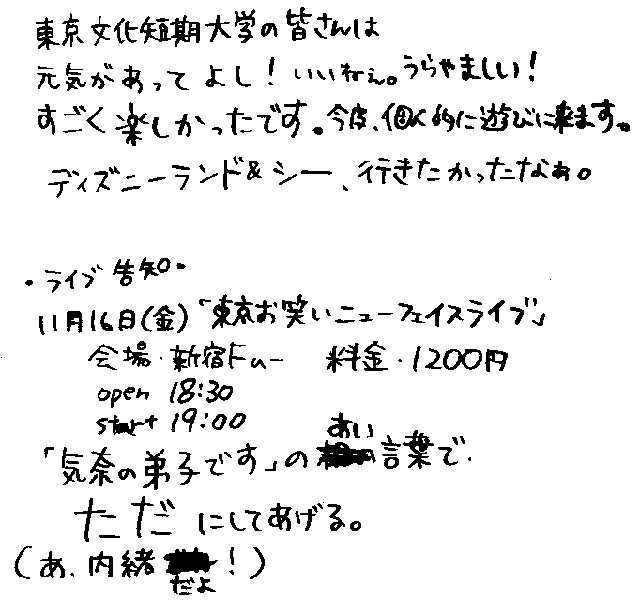 東京文化短期大学の皆さんは
元気があってよし！いいねぇ。うらやましい！
すごく楽しかったです。今度、個人的に遊びに来ます。
ディズニーランド&シー、行きたかったなぁ。
・ライブ告知・
11月16日(金)「東京お笑いニューフェイスライブ」
会場・新宿Fu- 料金・1200円
open 18:30
start 19:00
「気奈の弟子です」のあい言葉で、
ただにしてあげる。
(あ、内緒だよ！)